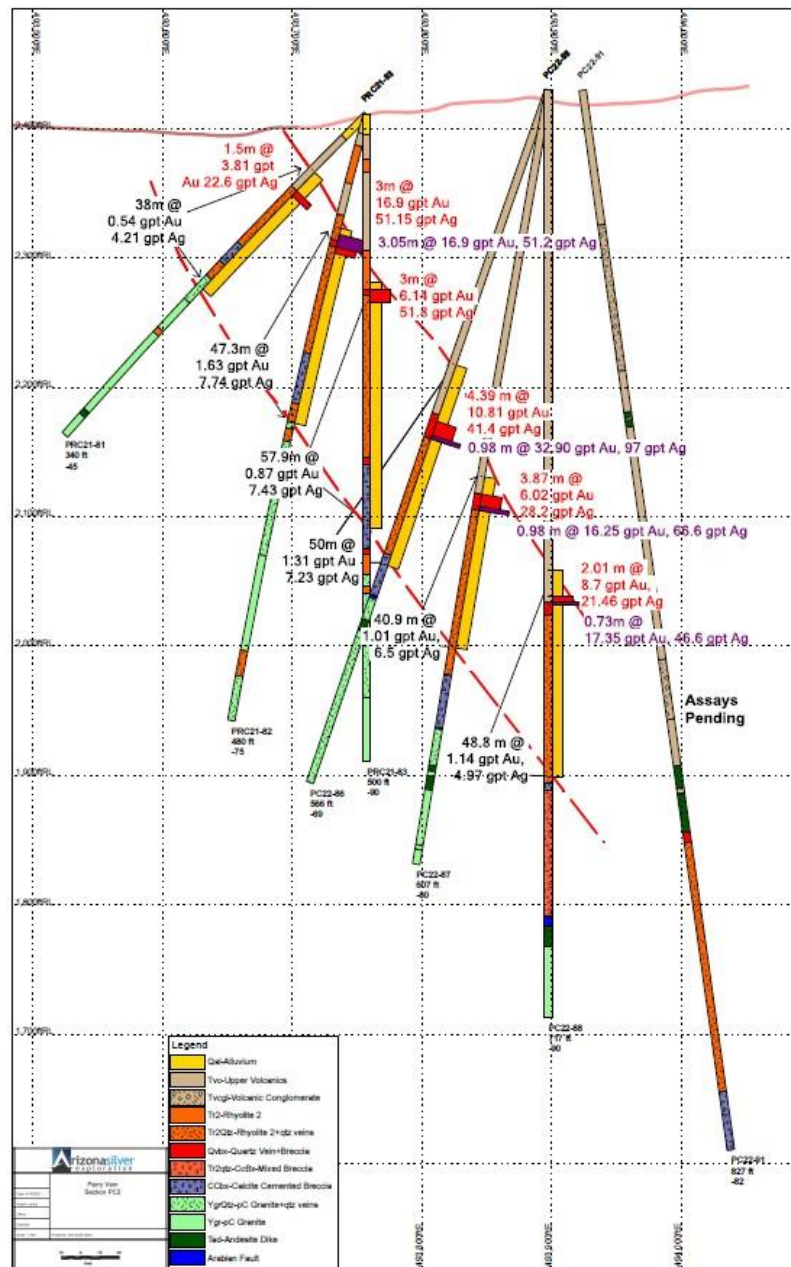 PRC21-83
PC22-88
PC22-91
1.5m @
3.81 gpt
Au 22.6 gpt Ag
38m @
0.54 gpt Au
4.21 gpt Ag
3m @
16.9 gpt Au
51.15 gpt Ag
3.05m @ 16.9 gpt Au, 51.2 gpt Ag
3m @
6.14 gpt Au
51.8 gpt Ag
47.3m @
1.63 gpt Au
7.74 gpt Ag
4.39 m @
10.81 gpt Au
41.4 gpt Ag
0.98 m @ 32.90 gpt Au, 97 gpt Ag
PRC21-81
340 ft
-45
57.9m @
0.87 gpt Au
7.43 gpt Ag
3.87 m @
6.02 gpt Au
28.2 gpt Ag
0.98 m @ 16.25 gpt Au, 66.6 gpt Ag
50m @
1.31 gpt Au
7.23 gpt Ag
2.01 m @
8.7 gpt Au,
21.46 gpt Ag
0.73m @
17.35 gpt Au, 46.6 gpt Ag
40.9 m @
1.01 gpt Au,
6.5 gpt Ag
Assays
Pending
48.8 m @
1.14 gpt Au,
4.97 gpt Ag
PRC21-82
480 ft
-75
PRC21-83
500 ft
-90
PC22-86
566 ft
-69
PC22-87
607 ft
-80
PC22-88
717 ft
-90
PC22-91
827 ft
-82
Legend
Qal-Alluvium
Tvo-Upper Volcanics
Tvcgl-Volcanic Conglomerate
Tr2-Rhyolite 2
Tr2Qtz-Rhyolite 2+qtz veins
Qvbx-Quartz Vein+Breccia
Tr2qtz-CcBx-Mixed Breccia
CCbx-Calcite Cemented Breccia
YgrQtz-pC Granite+qtz veins
Ygr-pC Granite
Tad-Andesite Dike
Arabian Fault
Arizonasilver
exploration
Perry Vein
Section PC2